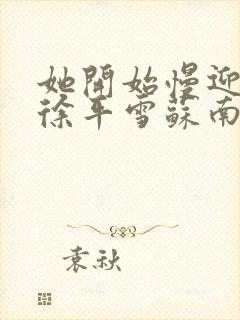 她開始慢迎
徐年雪蘇南
袁秋